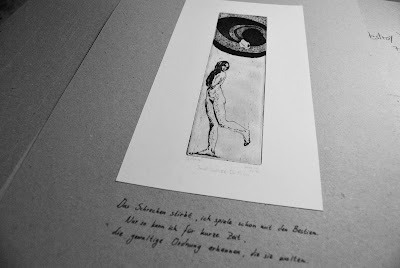 Der Schrecken stirbt, ich spiele schon mit den Bestien
Nur so kann ich für kurze Zeit,
die gewaltige Ordnung erkennen, die sie wollen.